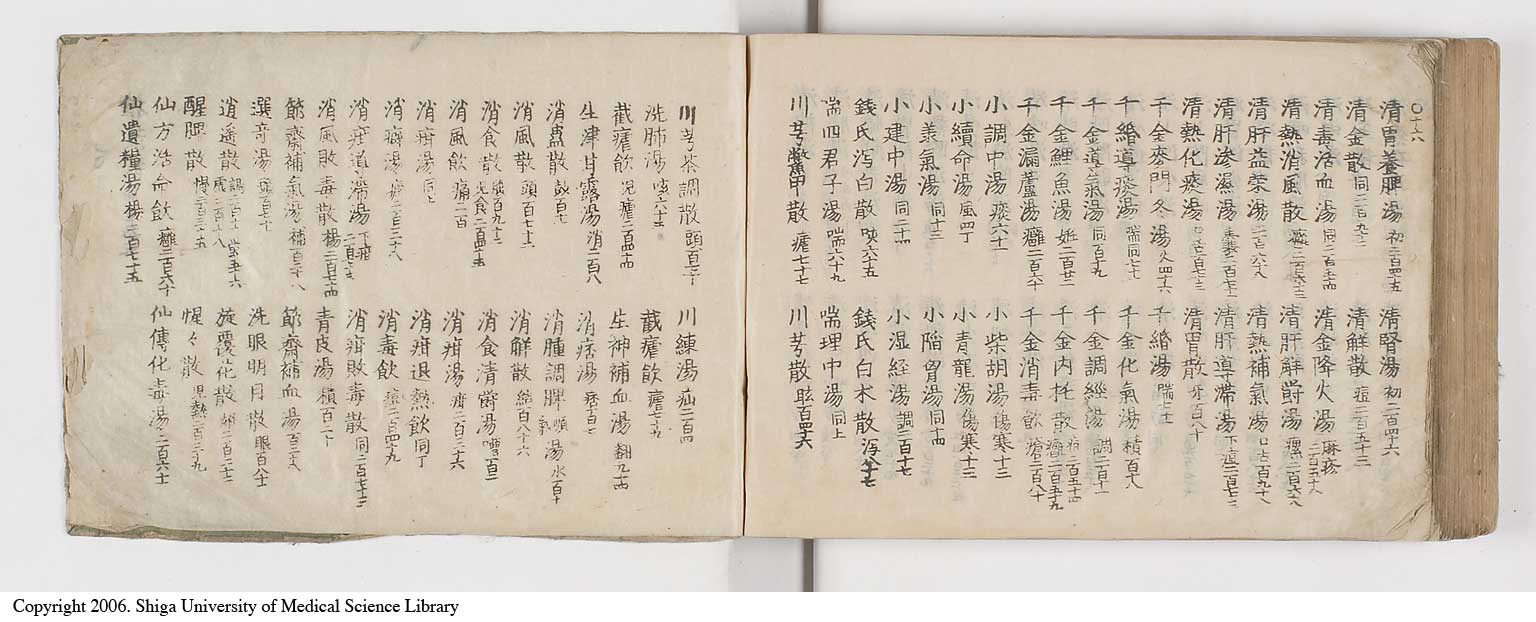 〇十六
清胃養脾湯 初二百四十五
清腎湯 初二百四十六
清金散 同二百九十二
清解散 痘二百五十三
清毒活血湯 同二百五十四
清金降火湯 麻疹二百五十八
清熱消風散 癰二百六十三
清肝解欝湯 癰二百六十八
清肝益榮湯 二百六十八
清熱補氣湯 口舌百九十八
清肝滲濕湯
清肝導滯湯 下疳二百七十三
清熱化痰湯
清胃散 牙百八十
千金麥門冬湯 欬四十六
千緡湯 喘七十三
千緡導痰湯 喘同七十七
千金化氣湯 積百十八
千金導氣湯 同百十九
千金調經湯 調二百十一
千金鯉魚湯 妊二百廿二
千金内托散 癰二百五十九
千金漏蘆湯 癰二百六十
千金消毒飲 瘡二百八十
小調中湯 痰六十一
小柴胡湯 傷寒十三
小續命湯 風四丁
小青龍湯 傷寒十三
小義氣湯 同十三
小陷胷湯 同十四
小建中湯 同二十四
小温経湯 調二百十七
錢氏泻白散 咳六十五
錢氏白术散 泻八十七
喘四君子湯 喘六十九
喘理中湯 同上
川芎鱉甲散 瘧七十七
川芎散 眩百四十六
川芎茶調散 頭百三十
川練湯 疝二百四
洗肺湯 咳六十五
截瘧飲 瘧七十五
截瘧飲 児瘧二百四十四
生神補血湯 翻九十四
生津甘露湯 消二百八
消痞湯 痞百七
消蠱散 鼓百七
消腫調脾順氣湯 水百十
消風散 頭百七十三
消解散 結百八十六
消食散 児食二百四十五
消食清欝湯 嘈百二
消風飲 痛一百
消疳湯 疳二百三十六
消疳湯 同上
消疳退熱飲 同丁
消癖湯 癖二百三十八
消毒飲 痘二百四十九
消疳道滯湯 下疳二百七十三
消疳敗毒散 同二百七十三
消風敗毒散 楊二百七十四
青皮湯 積百二十
節齋補氣湯 補百三十八
節齋補血湯 百三十八
選竒湯 頭百七十
洗眼明目散 眼百八十一
逍遥散 調二百十八
旋覆花散 婦二百二十七
醒脾散 慢二百三十五
惺々散 児熱二百三十九
仙方活命飲 癰二百六十
仙傳化毒湯 二百六十一
仙遺糧湯 楊二百七十五
Copyright 2006. Shiga University of Medical Science Library